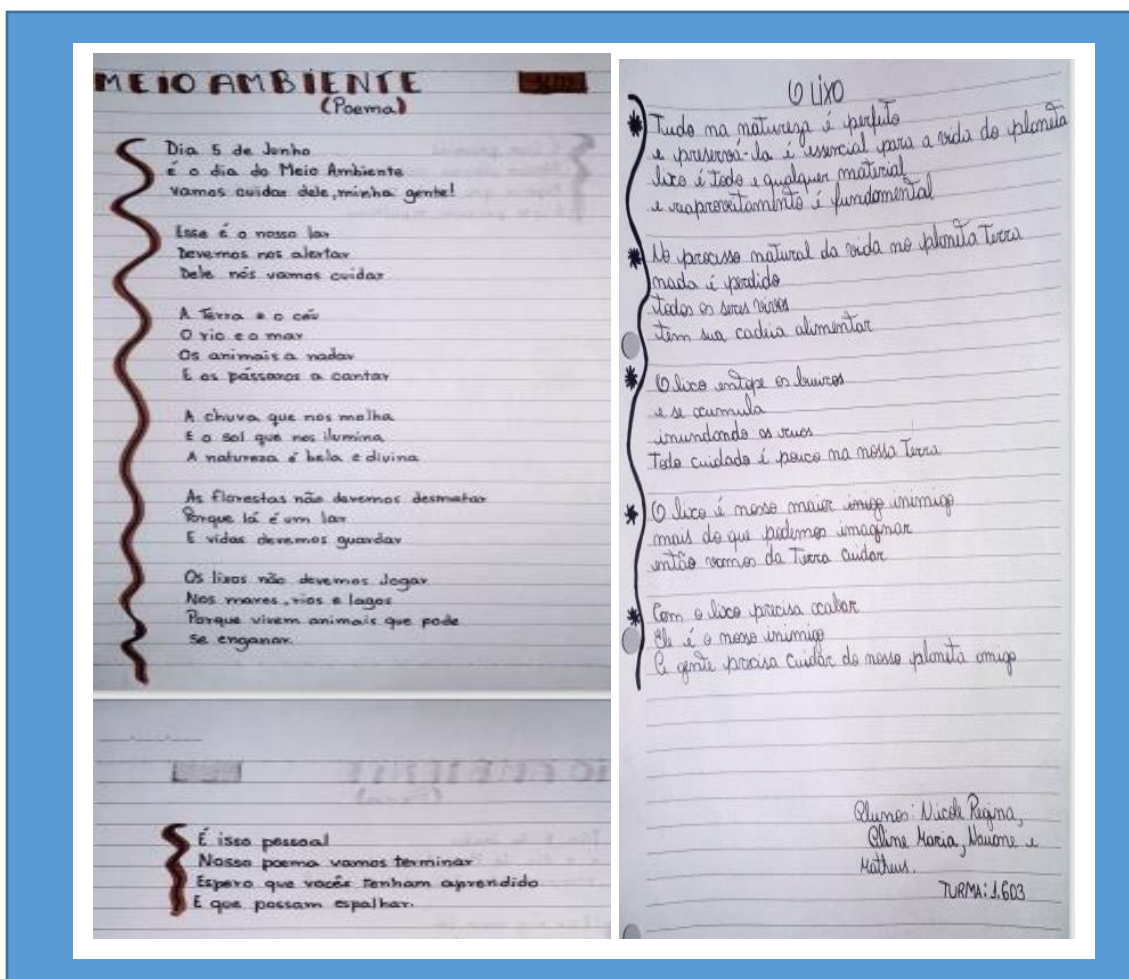 MEIO AMBIENTE
(Poema)
Dia 5 de Junho
é o dia do Meio Ambiente
vamos cuidar dele, minha gente!
Esse é o nosso lar
Devemos nos alertar
Dele nós vamos cuidar
A Terra e o céu
O rio e o mar
Os animais a nadar
E os pássaros a cantar
A chuva que nos molha
E o sol que nos ilumina
A natureza é bela e divina
As florestas não devemos desmatar
Porque lá é um lar
E vidas devemos guardar
Os lixos não devemos Jogar
Nos mares, rios e lagos
Porque vivem animais que pode
se enganar.
É isso pessoal
Nosso poema vamos terminar
Espero que vocês tenham aprendido
E que possam espalhar.
O LIXO
Tudo na natureza é perfeito
e preservá-la é essencial para a vida do planeta
lixo é todo e qualquer material
e reaproveitamento é fundamental
No processo natural da vida no planeta Terra
nada é perdido
todos os seres vivos
tem sua cadeia alimentar
O lixo entope os bueiros
e se acumula
inundando as ruas
Todo cuidado é pouco na nossa Terra
O lixo é nosso maior imigo inimigo
mais do que podemos imaginar
então vamos da Terra cuidar
Com o lixo precisa acabar
Ele é o nosso inimigo
A gente precisa cuidar do nosso planeta amigo
Alunos: Nicole Regina,
Aline Maria, e
Matheus.
TURMA: 1.603